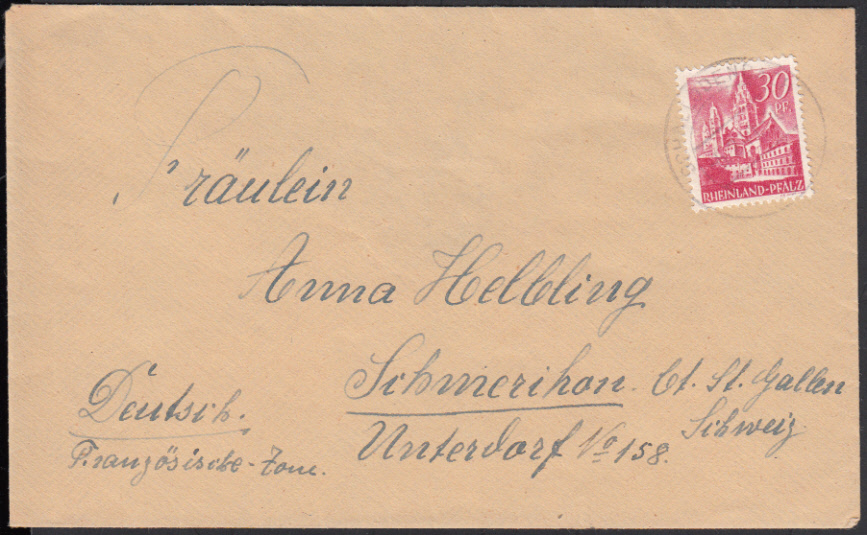 30
PF.
RHEINLAND-PFALZ
Fräulein
Anna Helbling
Schmerikon. Ct. St. Gallen
Schweiz
Unterdorf No 158.
Deutsch.
Französische-Zone.